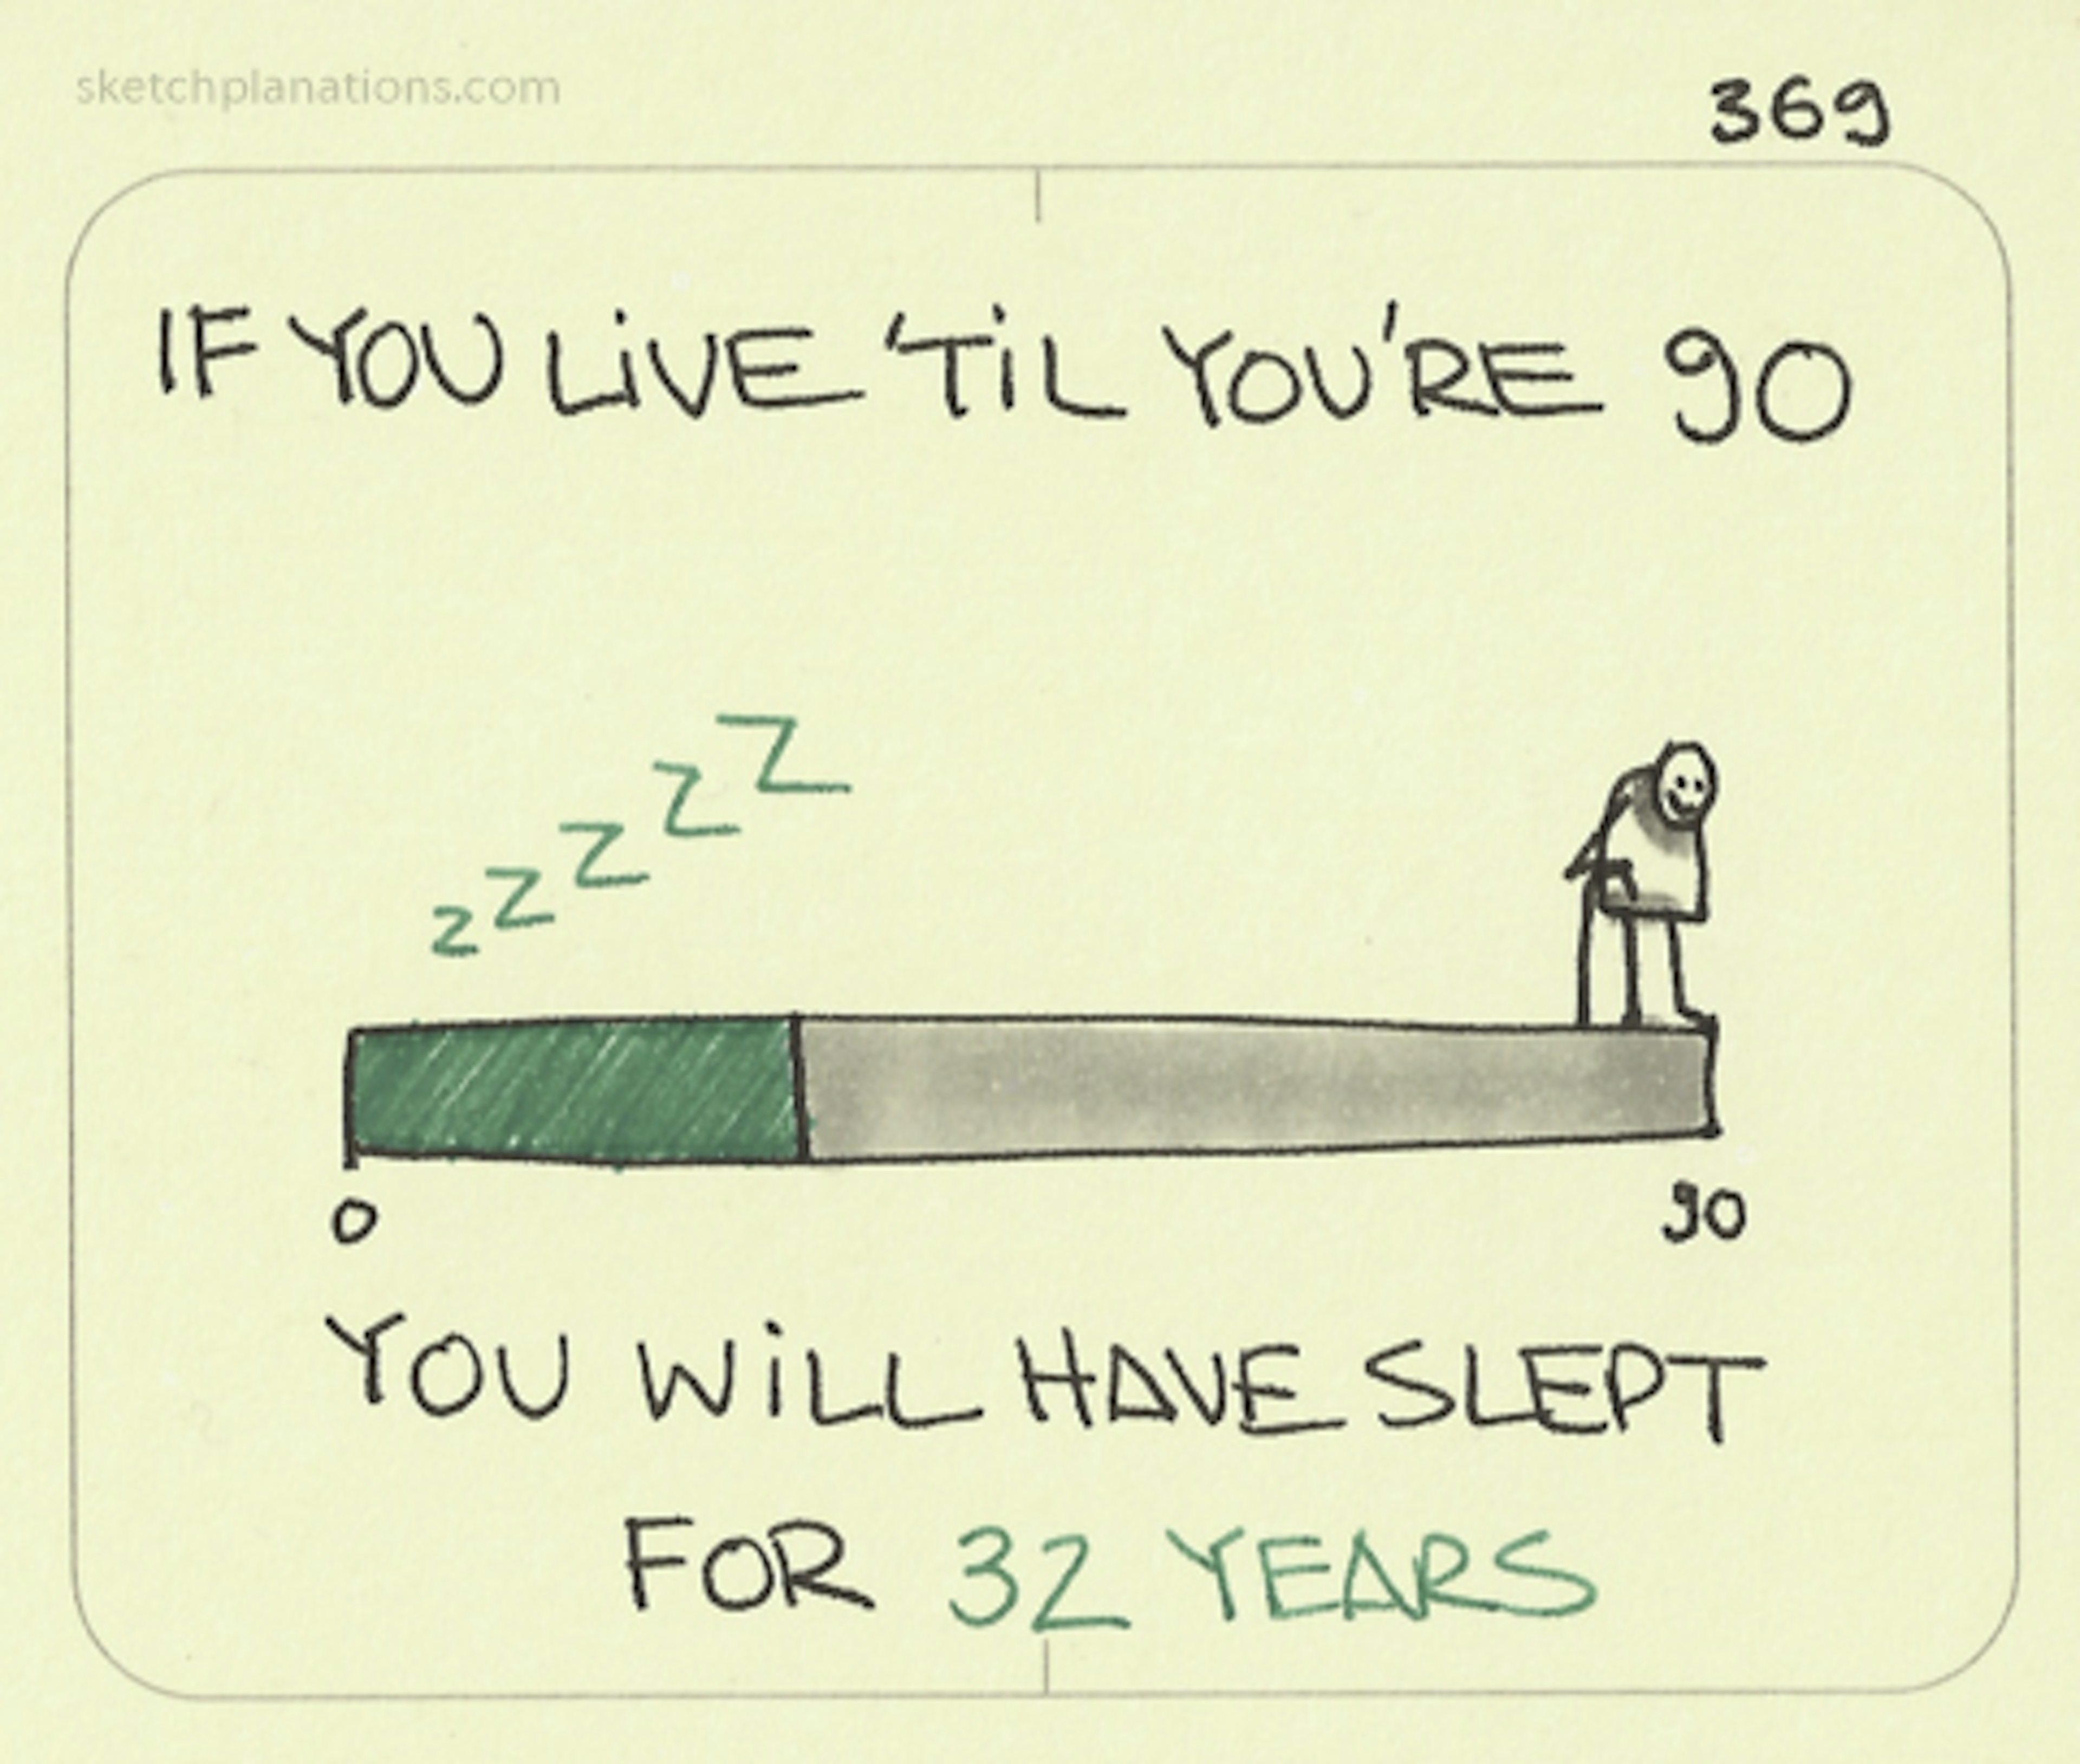 sketchplanations.com
369
IF YOU LIVE 'TIL YOU'RE 90
z z z z z
0 90
YOU WILL HAVE SLEPT
FOR 32 YEARS